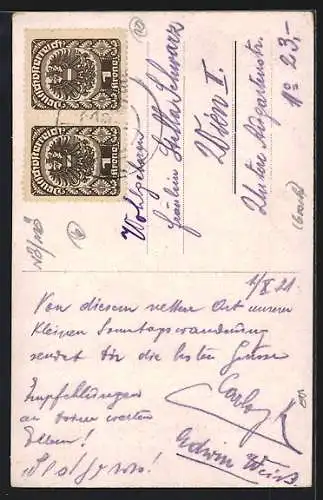 Deutschösterreich
1 Krone
Deutschösterreich
1 Krone
Wohlgeboren
Fräulein Stella Schwarz
Wien II.
Untere Augartenstr.
Nº 23,-
1/X 21
Von diesem netten Ort unserer
kleinen Sonntagswanderung
sendet Dir die besten Grüsse
Empfehlungen
an Deine werten
Eltern!
Edwin Weiss